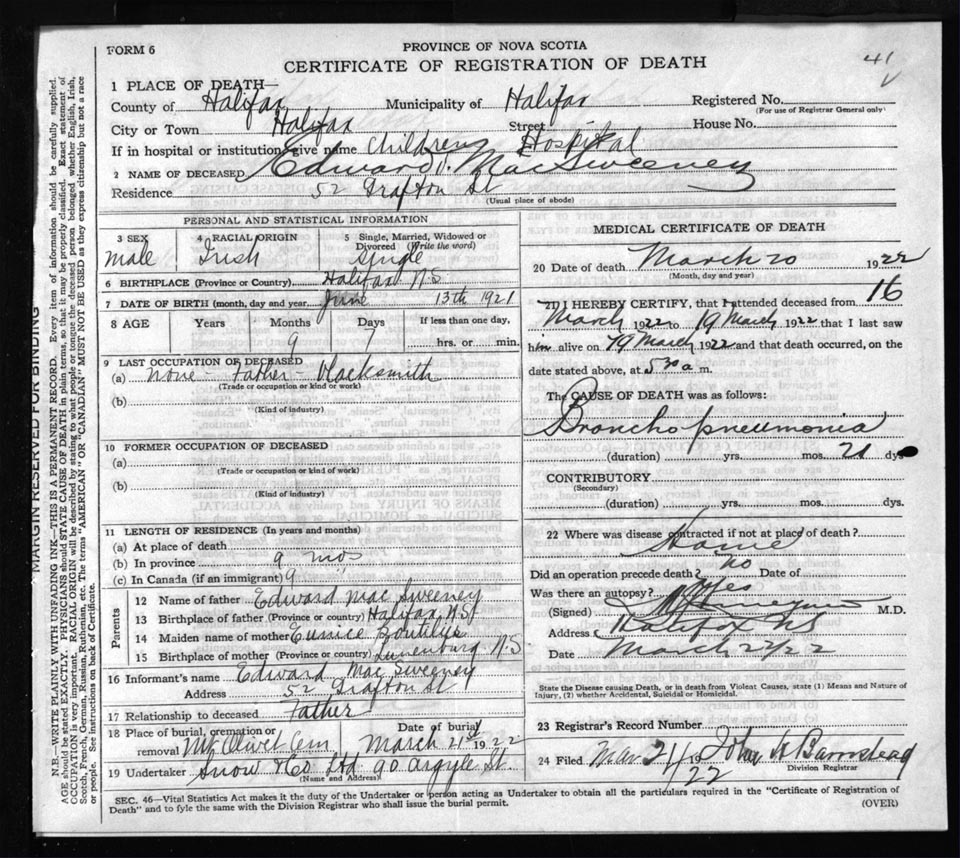 FORM 6
PROVINCE OF NOVA SCOTIA
CERTIFICATE OF REGISTRATION OF DEATH
41
1 PLACE OF DEATH
County of Halifax Municipality of Halifax Registered No.
(For use of Registrar General only)
City or Town Halifax Street House No.
If in hospital or institution give name Childrens Hospital
2 NAME OF DECEASED Edward MacSweeney
Residence 52 Grafton St
(Usual place of abode)
PERSONAL AND STATISTICAL INFORMATION
3 SEX 4 RACIAL ORIGIN 5 Single, Married, Widowed or Divorced (Write the word)
Male Irish Single
6 BIRTHPLACE (Province or Country) Halifax NS
7 DATE OF BIRTH (month, day and year) June 13th 1921
8 AGE Years Months Days If less than one day,
9 7 hrs. or min.
9 LAST OCCUPATION OF DECEASED
(a) None - Father - Blacksmith
(Trade or occupation or kind or work)
(b)
(Kind of industry)
10 FORMER OCCUPATION OF DECEASED
(a)
(Trade or occupation or kind of work)
(b)
(Kind of industry)
11 LENGTH OF RESIDENCE (In years and months)
(a) At place of death
(b) In province 9 mos
(c) In Canada (if an immigrant) 9
Parents
12 Name of father Edward Mac Sweeney
13 Birthplace of father (Province or country) Halifax NS
14 Maiden name of mother Eunice
15 Birthplace of mother (Province or country) Lunenburg N.S
16 Informant's name Edward Mac Sweeney
Address 52 Grafton St
17 Relationship to deceased Father
18 Place of burial, cremation or removal Mt Olivet Cem Date of burial March 21st 1922
19 Undertaker Snow & Co Ltd 90 Argyle St
(Name and Address)
MEDICAL CERTIFICATE OF DEATH
20 Date of death March 20 1922
(Month, day and year)
21 I HEREBY CERTIFY, that I attended deceased from 16
March 1922 to 19 March 1922 that I last saw
him alive on 19 March 1922 and that death occurred, on the
date stated above, at 5 30 a m.
The CAUSE OF DEATH was as follows:
Broncho pneumonia
(duration) yrs. mos. 21 dys
CONTRIBUTORY
(Secondary)
(duration) yrs. mos. dys.
22 Where was disease contracted if not at place of death?
Home
Did an operation precede death? no Date of
Was there an autopsy? yes
(Signed) M.D.
Address Halifax NS
Date March 22/22
State the Disease causing Death, or in death from Violent Causes, state (1) Means and Nature of
Injury, (2) whether Accidental, Suicidal or Homicidal.
23 Registrar's Record Number
24 Filed Mar 24 1922 John A Barnstead
Division Registrar
SEC. 46—Vital Statistics Act makes it the duty of the Undertaker or person acting as Undertaker to obtain all the particulars required in the "Certificate of Registration of
Death" and to fyle the same with the Division Registrar who shall issue the burial permit.
(OVER)
MARGIN RESERVED FOR BINDING
N.B.—WRITE PLAINLY WITH UNFADING INK—THIS IS A PERMANENT RECORD. Every item of information should be carefully supplied.
AGE should be stated EXACTLY. PHYSICIANS should STATE CAUSE OF DEATH in plain terms, so that it may be properly classified. Exact statement of
OCCUPATION is very important. RACIAL ORIGIN will be described by stating to what people or tongue the deceased person belonged, whether English, Irish,
Scotch, French, German, Russian, Ruthenian, etc. The terms "AMERICAN" OR "CANADIAN" MUST NOT BE USED as they express citizenship but not a race
or people. See instructions on back of Certificate.